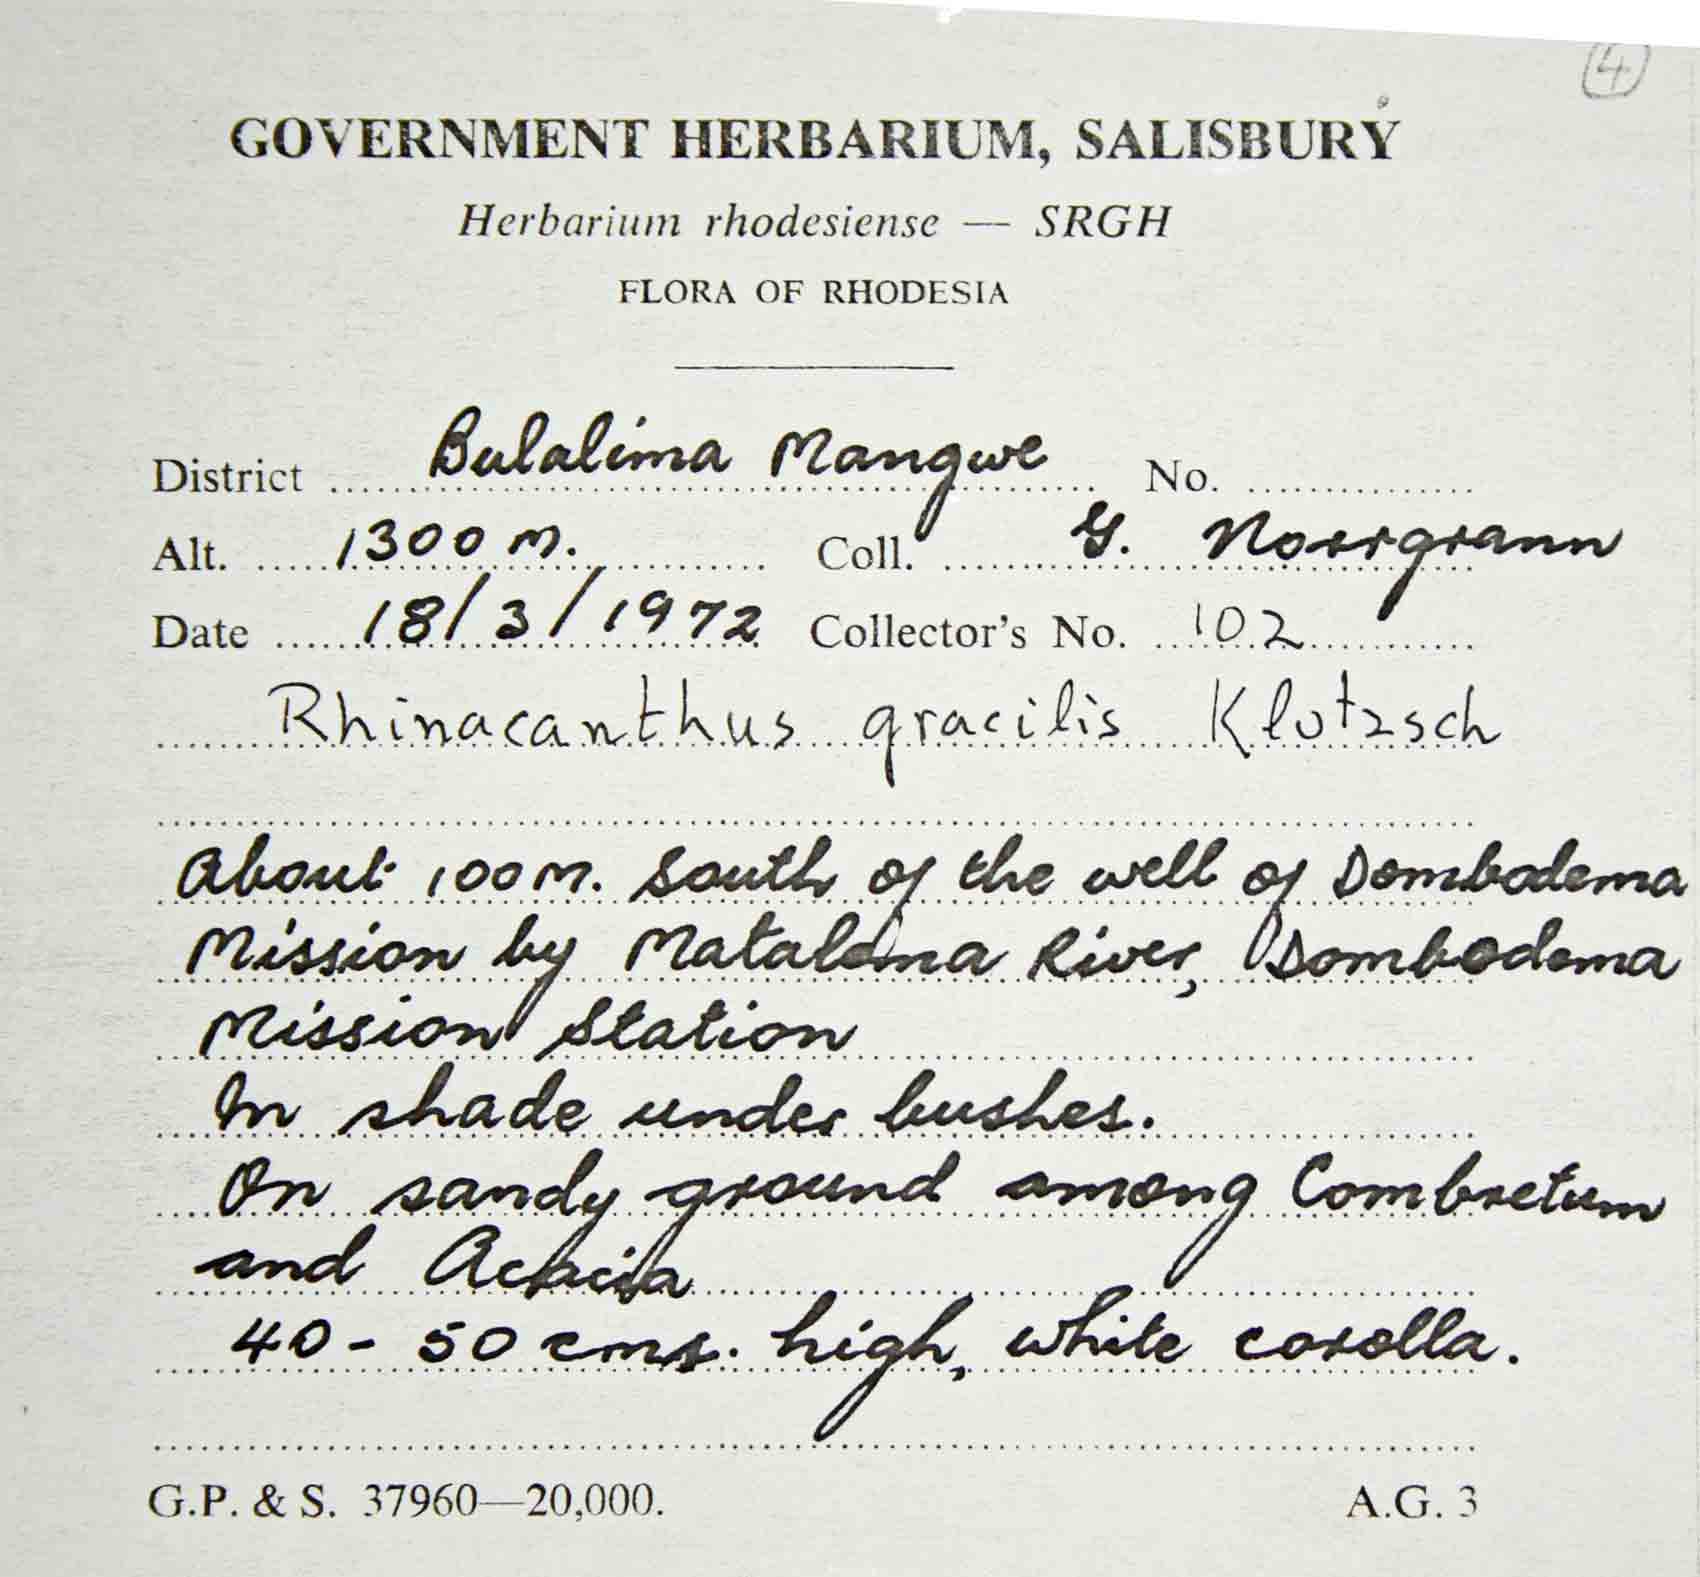 4
GOVERNMENT HERBARIUM, SALISBURY
Herbarium rhodesiense — SRGH
FLORA OF RHODESIA
District Bulalima Mangwe No.
Alt. 1300 m. Coll. G. Norrgrann
Date 18/3/1972 Collector's No. 102
Rhinacanthus gracilis Klotzsch
About 100 m. south of the well of Dombodema
Mission by Matalema River, Dombodema
Mission Station
In shade under bushes.
On sandy ground among Combretum
and Acacia
40 - 50 cms. high, white corolla.
G.P. & S. 37960—20,000. A.G. 3